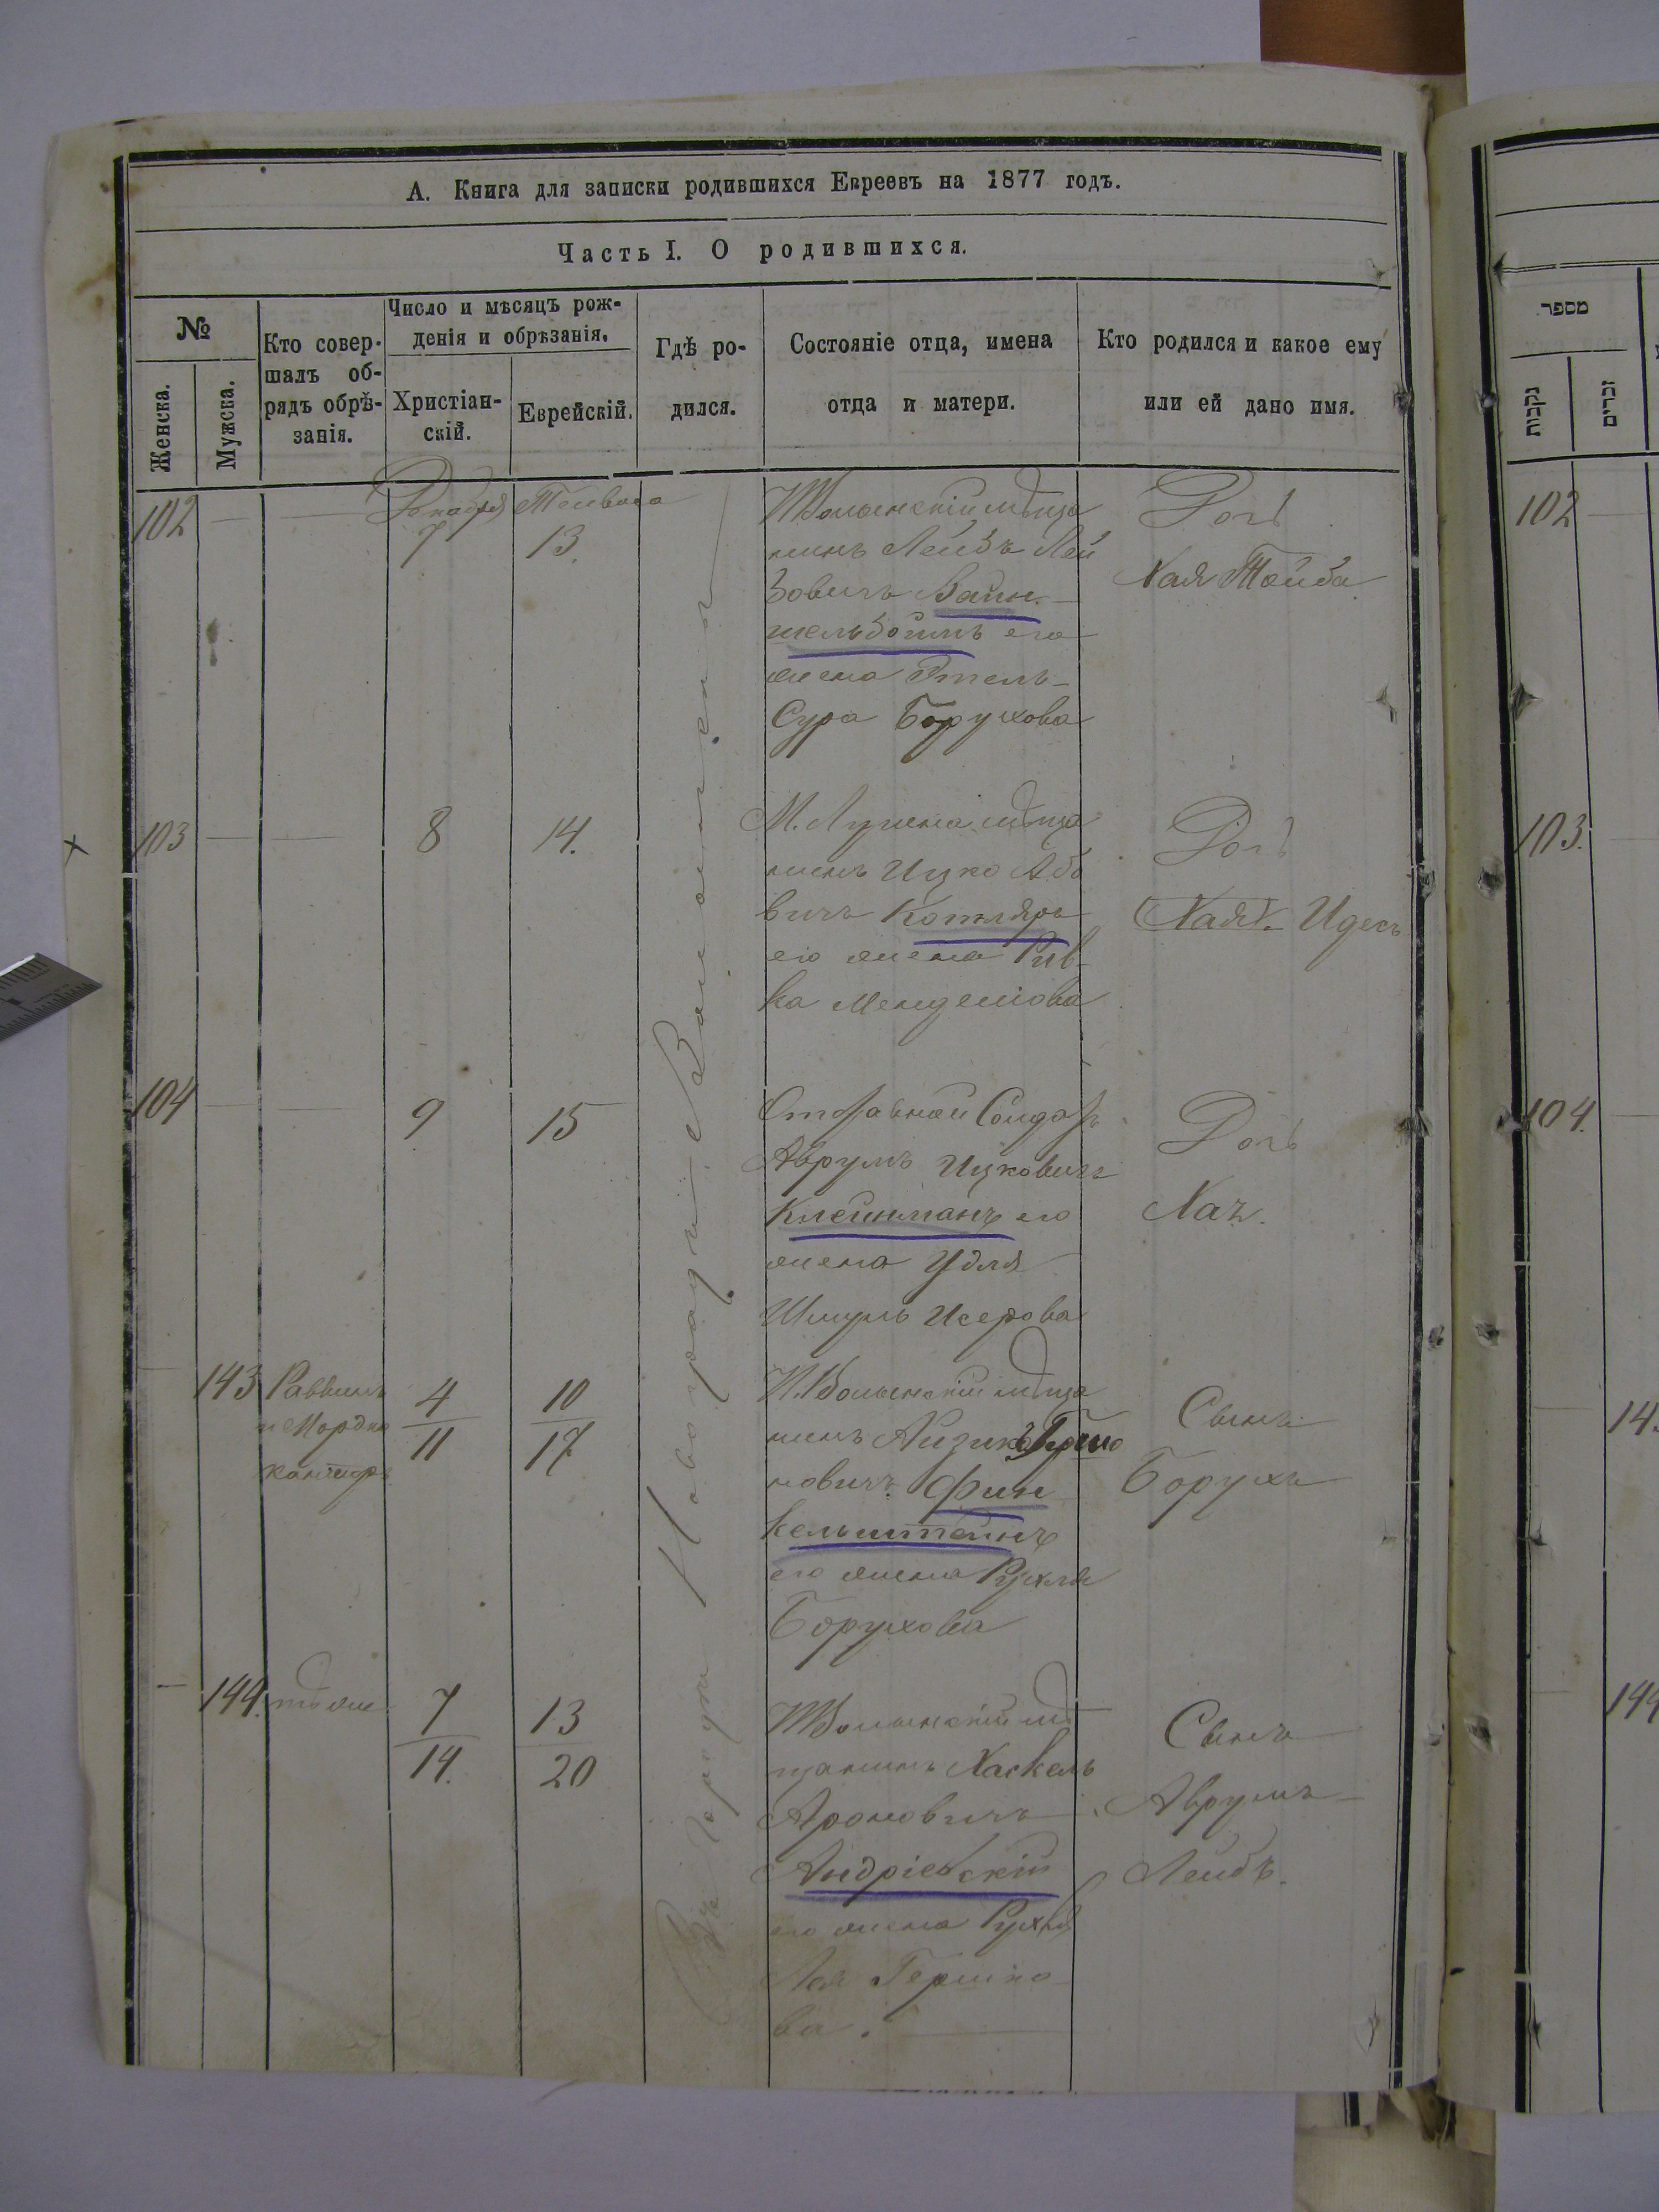 А. Книга для записки родившихся Евреевъ на 1877 годъ.
Часть I. О родившихся.
№
Женска.
Мужска.
Кто совер-
шалъ об-
рядъ обрѣ-
занія.
Число и мѣсяцъ рож-
денія и обрѣзанія.
Христіан-
скій.
Еврейскій.
Гдѣ ро-
дился.
Состояніе отца, имена
отца и матери.
Кто родился и какое ему
или ей дано имя.
Въ городѣ Новоградѣ-Волынскѣ
102
Декабря
7
13.
мѣща
нинъ Лейбъ Лей
бовичъ Вайн-
шельбоимъ его
жена Этель-
Сура Борухова
Дочь
Хая Тойба
103
8
14.
мѣща
нинъ Ицко Або
вичъ Котляръ
его жена Рив-
ка Менделіова
Дочь
(Хая). Идесъ
104
9
15
Отставной Солдатъ
Аврумъ Ицковичъ
Клейнманъ его
жена Удля
Шмуль Исерова
Дочь
Хая.
143
Раввинъ
и Мордко
Канторъ
4
11
10
17
Н.Волынскій мѣща
нинъ Айзикъ
новичъ Фин
кельштейнъ
его жена Рухля
Борухова
Сынъ
Борухъ
144.
тоже
7
14.
13
20
Н.Волынскій мѣ
щанинъ Хаскель
Ароновичъ
Андріевскій
его жена Рухля
Лея Гершко-
ва.
Сынъ
Аврумъ-
Лейбъ.
מספר
נקבות
זכרים
102
103.
104.
14
144